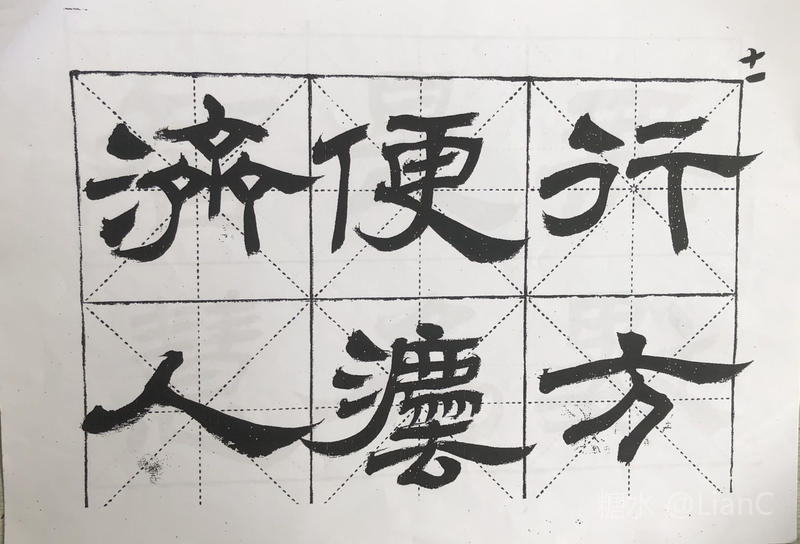 十一
行方
便灋
濟人
糖水 @LianC